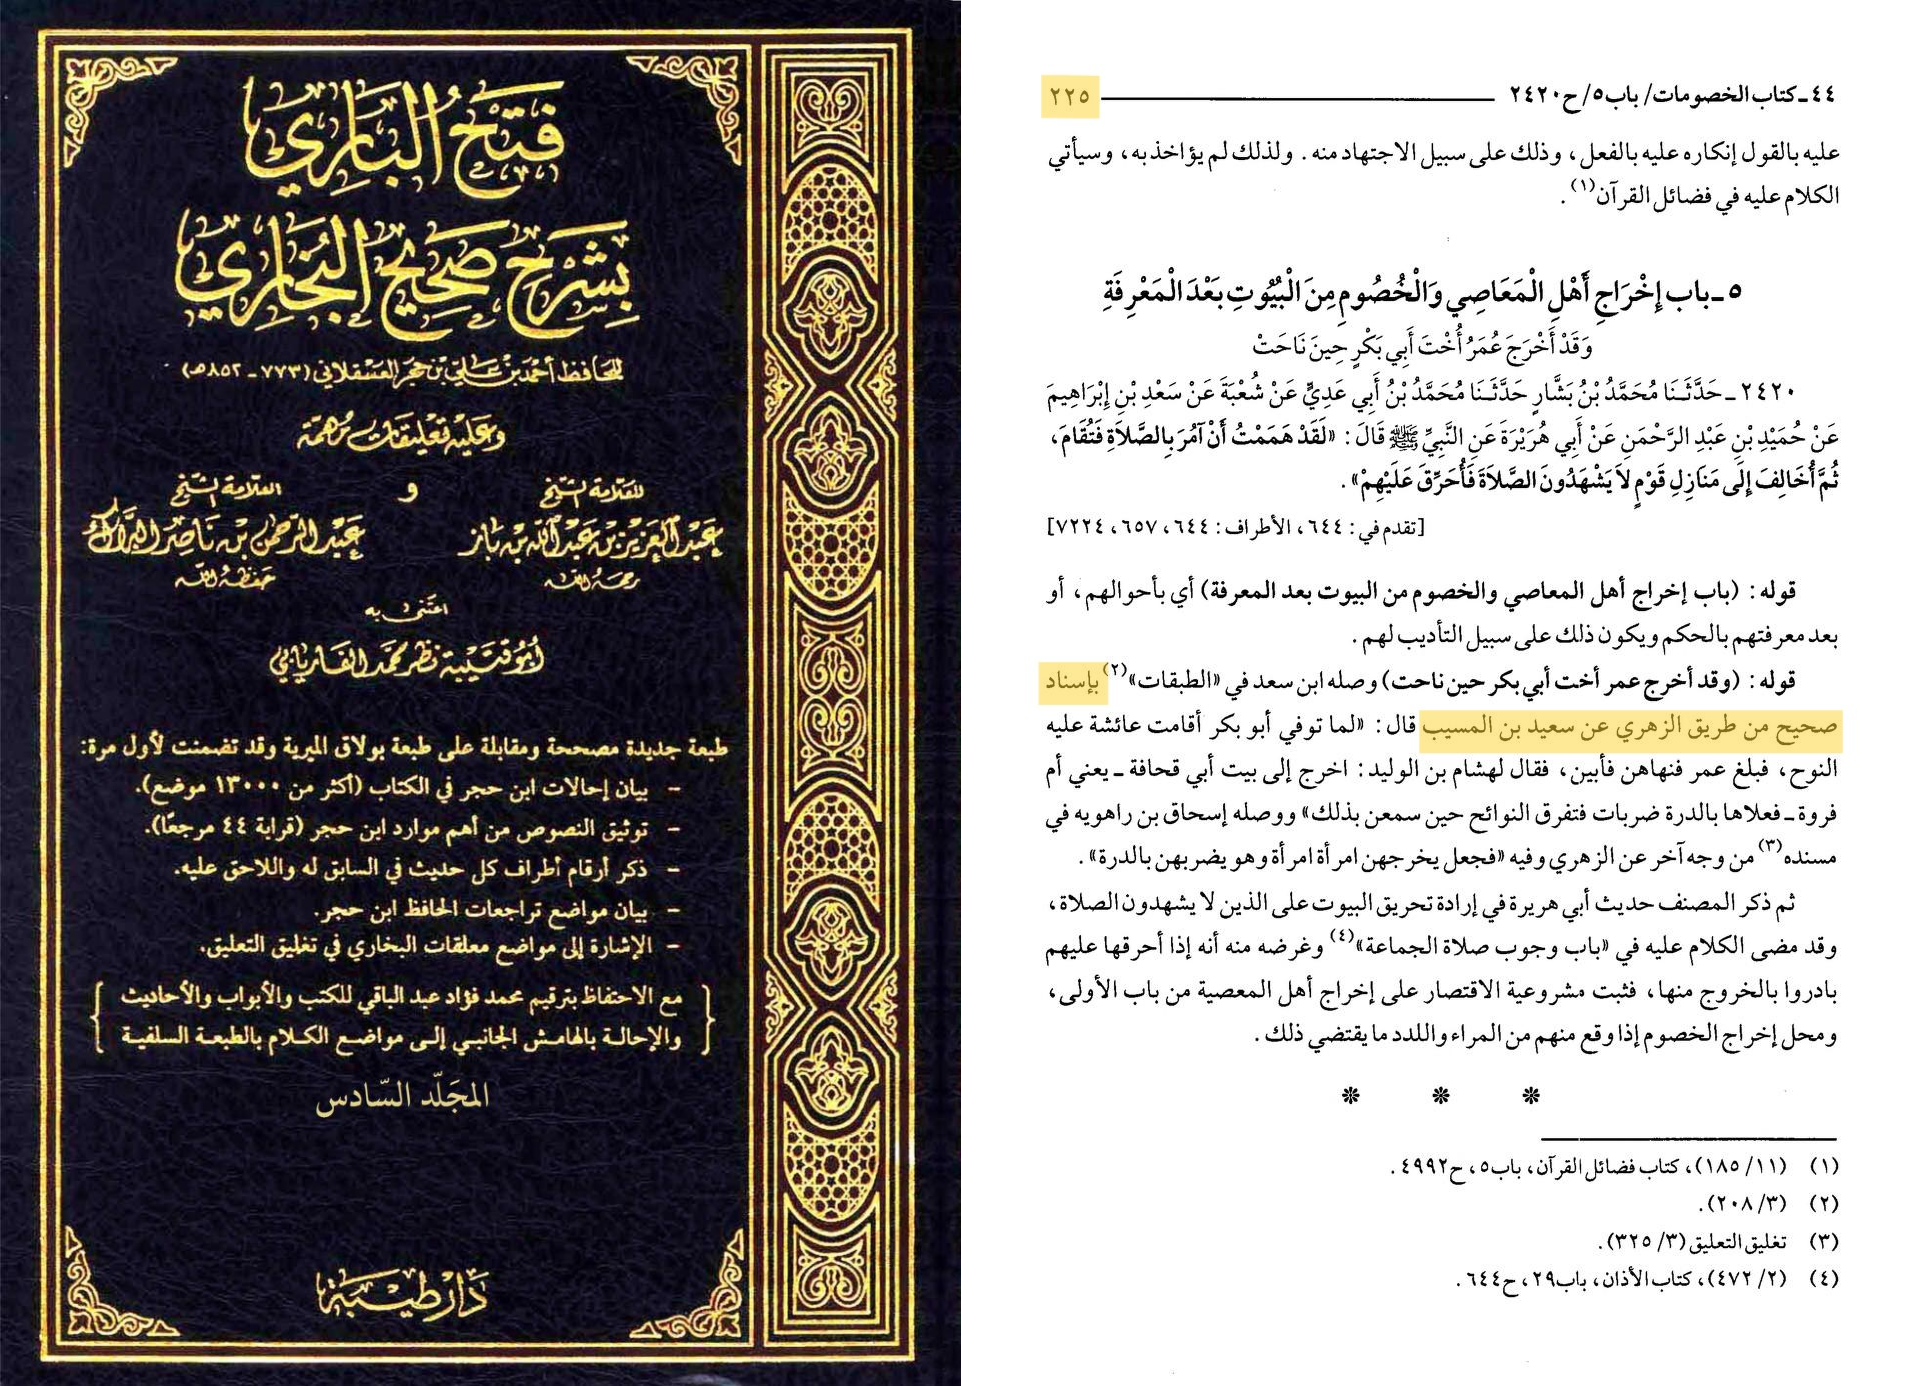 فتح الباري
بشرح صحيح البخاري
للحافظ أحمد بن علي بن حجر العسقلاني (٧٧٣ - ٨٥٢ هـ)
وعليه تعليقات مهمة
للعلامة الشيخ
عبد العزيز بن عبد الله بن باز
رحمه الله
و
العلامة الشيخ
عبد الرحمن بن ناصر البراك
حفظه الله
اعتنى به
أبو قتيبة نظر محمد الفاريابي
طبعة جديدة مصححة ومقابلة على طبعة بولاق الميرية وقد تضمنت لأول مرة:
- بيان إحالات ابن حجر في الكتاب (أكثر من ١٣٠٠٠ موضع).
- توثيق النصوص من أهم موارد ابن حجر (قرابة ٤٤ مرجعًا).
- ذكر أرقام أطراف كل حديث في السابق له واللاحق عليه.
- بيان مواضع تراجعات الحافظ ابن حجر.
- الإشارة إلى مواضع معلقات البخاري في تغليق التعليق.
{ مع الاحتفاظ بترقيم محمد فؤاد عبد الباقي للكتب والأبواب والأحاديث
والإحالة بالهامش الجانبي إلى مواضع الكلام بالطبعة السلفية }
المجلد السادس
دار طيبة
٤٤ ـ كتاب الخصومات/ باب ٥/ ح ٢٤٢٠ ٢٢٥
عليه بالقول إنكاره عليه بالفعل، وذلك على سبيل الاجتهاد منه. ولذلك لم يؤاخذ به، وسيأتي
الكلام عليه في فضائل القرآن(١).
٥ ـ باب إِخْرَاجِ أَهْلِ الْمَعَاصِي وَالْخُصُومِ مِنَ الْبُيُوتِ بَعْدَ الْمَعْرِفَةِ
وَقَدْ أَخْرَجَ عُمَرُ أُخْتَ أَبِي بَكْرٍ حِينَ نَاحَتْ
٢٤٢٠ ـ حَدَّثَنَا مُحَمَّدُ بْنُ بَشَّارٍ حَدَّثَنَا مُحَمَّدُ بْنُ أَبِي عَدِيٍّ عَنْ شُعْبَةَ عَنْ سَعْدِ بْنِ إِبْرَاهِيمَ
عَنْ حُمَيْدِ بْنِ عَبْدِ الرَّحْمَنِ عَنْ أَبِي هُرَيْرَةَ عَنِ النَّبِيِّ ﷺ قَالَ: «لَقَدْ هَمَمْتُ أَنْ آمُرَ بِالصَّلاَةِ فَتُقَامَ،
ثُمَّ أُخَالِفَ إِلَى مَنَازِلِ قَوْمٍ لاَ يَشْهَدُونَ الصَّلاَةَ فَأُحَرِّقَ عَلَيْهِمْ».
[تقدم في: ٦٤٤، الأطراف: ٦٤٤، ٦٥٧، ٧٢٢٤]
قوله: (باب إخراج أهل المعاصي والخصوم من البيوت بعد المعرفة) أي بأحوالهم، أو
بعد معرفتهم بالحكم ويكون ذلك على سبيل التأديب لهم.
قوله: (وقد أخرج عمر أخت أبي بكر حين ناحت) وصله ابن سعد في «الطبقات»(٢) بإسناد
صحيح من طريق الزهري عن سعيد بن المسيب قال: «لما توفي أبو بكر أقامت عائشة عليه
النوح، فبلغ عمر فنهاهن فأبين، فقال لهشام بن الوليد: اخرج إلى بيت أبي قحافة ـ يعني أم
فروة ـ فعلاها بالدرة ضربات فتفرق النوائح حين سمعن بذلك» ووصله إسحاق بن راهويه في
مسنده(٣) من وجه آخر عن الزهري وفيه «فجعل يخرجهن امرأة امرأة وهو يضربهن بالدرة».
ثم ذكر المصنف حديث أبي هريرة في إرادة تحريق البيوت على الذين لا يشهدون الصلاة،
وقد مضى الكلام عليه في «باب وجوب صلاة الجماعة»(٤) وغرضه منه أنه إذا أحرقها عليهم
بادروا بالخروج منها، فثبت مشروعية الاقتصار على إخراج أهل المعصية من باب الأولى،
ومحل إخراج الخصوم إذا وقع منهم من المراء واللدد ما يقتضي ذلك.
* * *
(١) (١١/ ١٨٥)، كتاب فضائل القرآن، باب ٥، ح ٤٩٩٢.
(٢) (٣/ ٢٠٨).
(٣) تغليق التعليق (٣/ ٣٢٥).
(٤) (٢/ ٤٧٢)، كتاب الأذان، باب ٢٩، ح ٦٤٤.